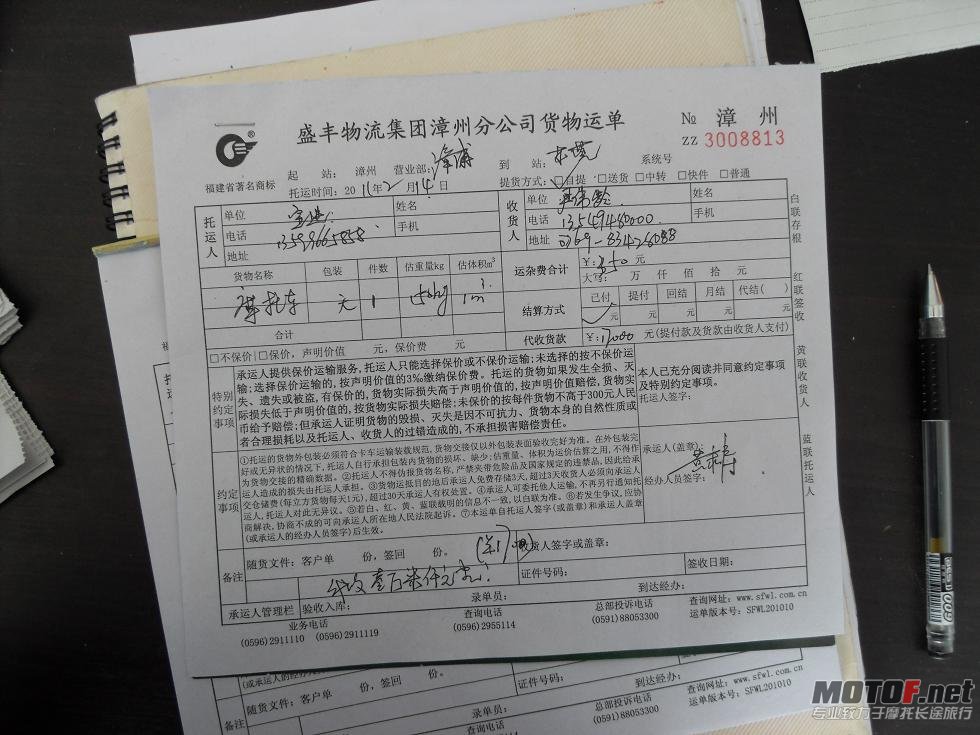 盛丰物流集团漳州分公司货物运单
№ 漳州
ZZ 3008813
®
福建省著名商标
起 站： 漳州 营业部：漳浦 到 站： 东莞 系统号
托运时间：2011年2月14日 提货方式：□自提 □送货 □中转 □快件 □普通
托运人 单位 姓名 收货人 单位 姓名
电话 手机 电话 13549480000 手机
地址 地址 0769-83426088
货物名称 包装 件数 估重量kg 估体积m³ 运杂费合计 ￥：350元
大写： 万 仟 佰 拾 元
摩托车 元 1 150kg 1m³
结算方式 已付 提付 回结 月结 代结（ ）
元 元 元 元 元
合计 代收货款 ￥：17000 元（提付款及货款由收货人支付）
□不保价 □保价，声明价值 元，保价费 元
特别约定事项
承运人提供保价运输服务，托运人只能选择保价或不保价运输；未选择的按不保价运
输；选择保价运输的，按声明价值的3‰缴纳保价费。托运的货物如果发生全损、灭
失、遗失或被盗，有保价的，货物实际损失高于声明价值的，按声明价值赔偿，货物实
际损失低于声明价值的，按货物实际损失赔偿；未保价的按每件货物不高于300元人民
币给予赔偿；但承运人证明货物的毁损、灭失是因不可抗力、货物本身的自然性质或
者合理损耗以及托运人、收货人的过错造成的，不承担损害赔偿责任。
本人已充分阅读并同意约定事项
及特别约定事项。
托运人签字：
约定事项
①托运的货物外包装必须符合卡车运输装载规范，货物交接仅以外包装表面验收完好为准。在外包装完
好或无异状的情况下，托运人自行承担包装内货物的损坏、缺少；估重量、体积为运价估算之用，不得作
为货物交接的精确数据。②托运人不得伪报货物名称，严禁夹带危险品及国家规定的违禁品，因此给承
运人造成的损失由托运人承担。③货物运抵目的地后承运人免费存储3天，超过3天收货人必须向承运人
交仓储费（每立方货物每天1元），超过30天承运人有权处置。④承运人可委托他人运输，不再另行通知托
运人，托运人对此无异议。⑤若白、红、黄、蓝联载明的信息不一致，以白联为准。⑥若发生争议，应协
商解决，协商不成的可向承运人所在地人民法院起诉。⑦本运单自托运人签字（或盖章）和承运人盖章
（或承运人的经办人员签字）后生效。
承运人（盖章）：
经办人员签字：
备注 随货文件：客户单 份，签回 份。 收货人签字或盖章：
代收壹万柒仟元
证件号码： 签收日期：
承运人管理栏 验收入库： 录单员： 到达经办：
业务电话 查询电话 总部投诉电话 查询网址：www.sfwl.com.cn
(0596)2911110 (0596)2911119 (0596)2955114 (0591)88053300 运单版本号：SFWL201010
白联存根
红联签收
黄联收货人
蓝联托运人
(或承运人的经办人员
备注 随货文件：客户单 份，签回 份。
证件号码： 到达经办：
录单员：
总部投诉电话 查询网址：www.sfwl.com.cn
(0591)88053300 运单版本号：SFWL201010
MOTOF.net
专业致力于摩托长途旅行